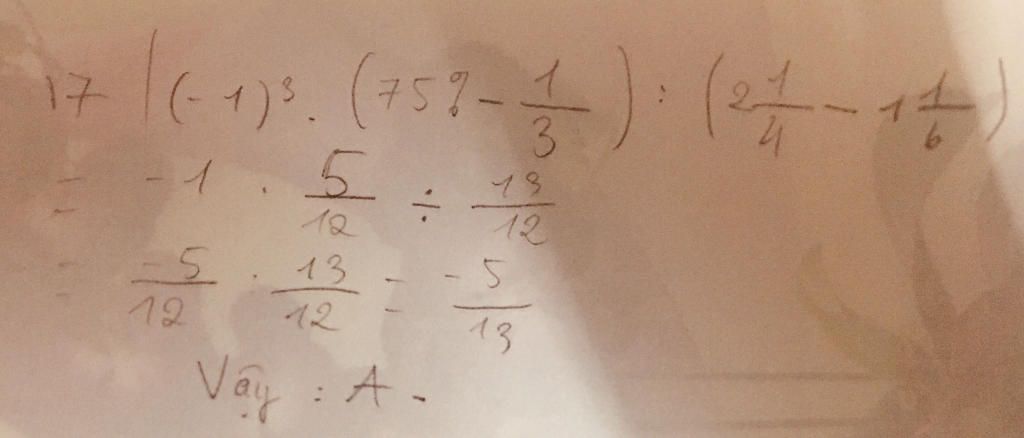 17 | (-1)³ . (75% - 1/3) : (2 1/4 - 1 1/6)
= -1 . 5/12 ÷ 13/12
= -5/12 . 13/12 = -5/13
Vậy : A .